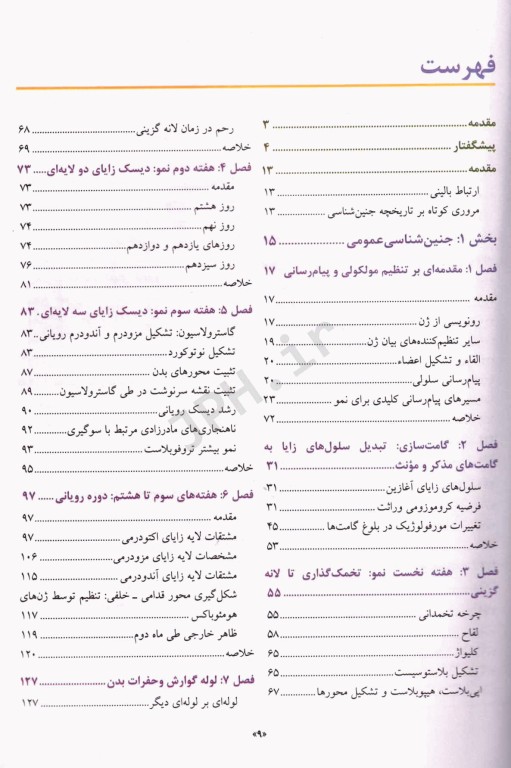 فهرست
مقدمه ۳
پیشگفتار ۴
مقدمه ۱۳
ارتباط بالینی ۱۳
مروری کوتاه بر تاریخچه جنین‌شناسی ۱۳
بخش ۱: جنین‌شناسی عمومی ۱۵
فصل ۱: مقدمه‌ای بر تنظیم مولکولی و پیام‌رسانی ۱۷
مقدمه ۱۷
رونویسی از ژن ۱۷
سایر تنظیم‌کننده‌های بیان ژن ۱۹
القاء و تشکیل اعضاء ۲۰
پیام‌رسانی سلولی ۲۰
مسیرهای پیام‌رسانی کلیدی برای نمو ۲۳
خلاصه ۷۲
فصل ۲: گامت‌سازی: تبدیل سلول‌های زایا به
گامت‌های مذکر و مؤنث ۳۱
سلول‌های زایای آغازین ۳۱
فرضیه کروموزومی وراثت ۳۱
تغییرات مورفولوژیک در بلوغ گامت‌ها ۴۵
خلاصه ۵۳
فصل ۳: هفته نخست نمو: تخمک‌گذاری تا لانه
گزینی ۵۵
چرخه تخمدانی ۵۵
لقاح ۵۸
کلیواژ ۶۵
تشکیل بلاستوسیست ۶۵
اپی‌بلاست، هیپوبلاست و تشکیل محورها ۶۷
رحم در زمان لانه گزینی ۶۸
خلاصه ۶۹
فصل ۴: هفته دوم نمو: دیسک زایای دو لایه‌ای ۷۳
مقدمه ۷۳
روز هشتم ۷۳
روز نهم ۷۴
روزهای یازدهم و دوازدهم ۷۴
روز سیزدهم ۷۶
خلاصه ۸۱
فصل ۵: هفته سوم نمو: دیسک زایای سه لایه‌ای ۸۳
گاسترولاسیون: تشکیل مزودرم و آندودرم رویانی ۸۳
تشکیل نوتوکورد ۸۳
تثبیت محورهای بدن ۸۷
تثبیت نقشه سرنوشت در طی گاسترولاسیون ۸۹
رشد دیسک رویانی ۹۰
ناهنجاری‌های مادرزادی مرتبط با سوگیری ۹۲
نمو بیشتر تروفوبلاست ۹۳
خلاصه ۹۵
فصل ۶: هفته‌های سوم تا هشتم: دوره رویانی ۹۷
مقدمه ۹۷
مشتقات لایه زایای اکتودرمی ۹۷
مشخصات لایه زایای مزودرمی ۱۰۶
مشتقات لایه زایای آندودرمی ۱۱۵
شکل‌گیری محور قدامی ـ خلفی: تنظیم توسط ژن‌های
هومئوباکس ۱۱۷
ظاهر خارجی طی ماه دوم ۱۱۹
خلاصه ۱۲۰
فصل ۷: لوله گوارش وحفرات بدن ۱۲۷
لوله‌ای بر لوله‌ای دیگر ۱۲۷
«۹»
JPH.ir